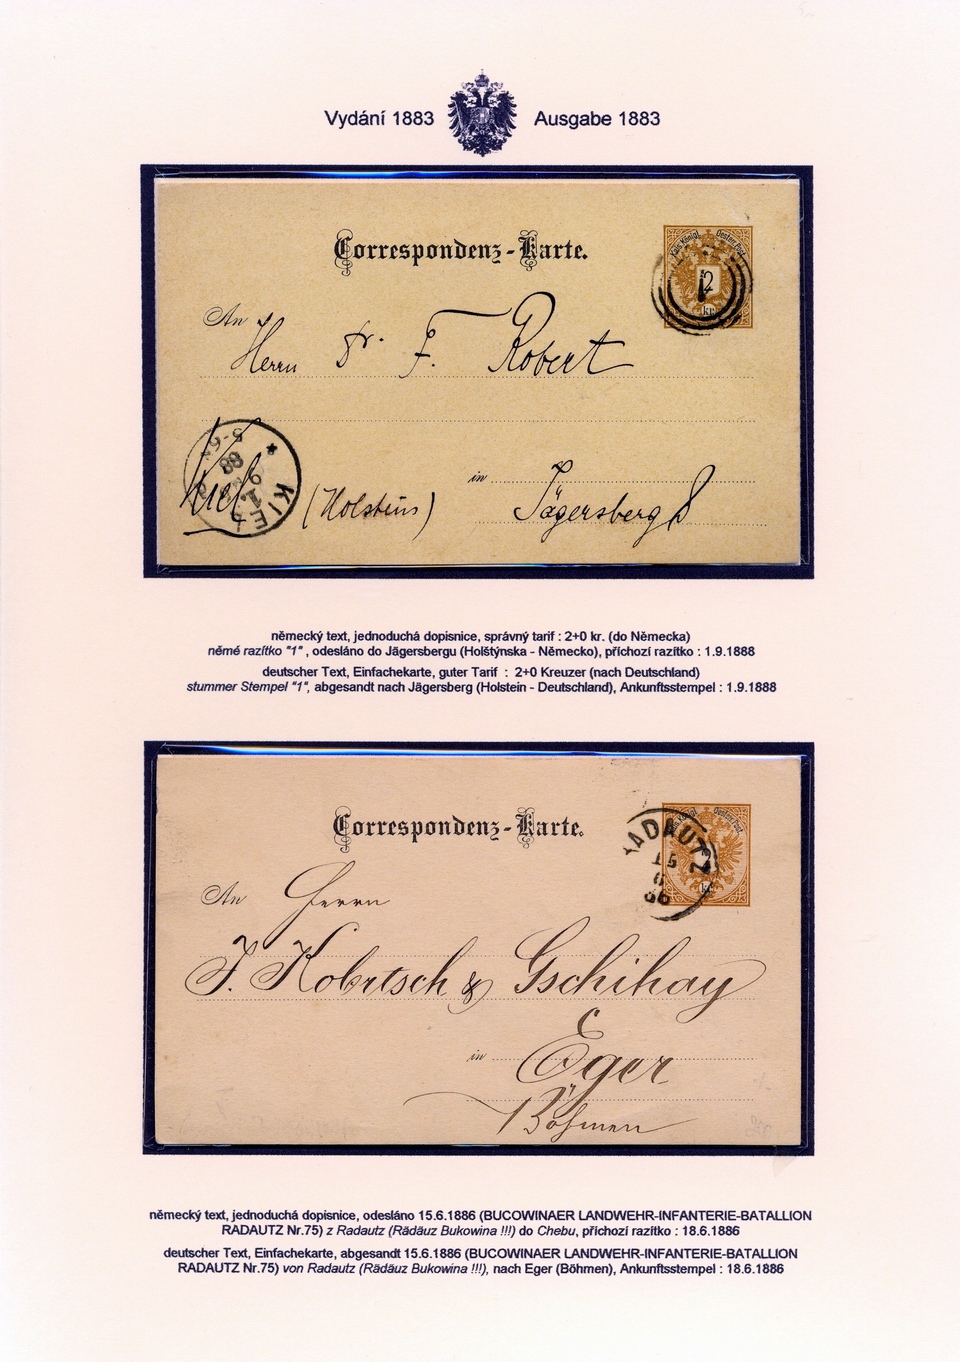 Vydání 1883 Ausgabe 1883
Correspondenz-Karte.
Kais. Königl. Oesterr. Post
2
kr.
1
An
Herrn Dr. F. Robert
in Jägersberg 8
Kiel (Holstein)
KIEL
1.9
88
5-6N
německý text, jednoduchá dopisnice, správný tarif : 2+0 kr. (do Německa)
němé razítko "1" , odesláno do Jägersbergu (Holštýnska - Německo), příchozí razítko : 1.9.1888
deutscher Text, Einfachekarte, guter Tarif : 2+0 Kreuzer (nach Deutschland)
stummer Stempel "1", abgesandt nach Jägersberg (Holstein - Deutschland), Ankunftsstempel : 1.9.1888
Correspondenz-Karte.
Kais. Königl. Oesterr. Post
kr.
RADAUTZ
15
6
86
An Herrn
J. Kobrtsch & Gschihay
in Eger
Böhmen
německý text, jednoduchá dopisnice, odesláno 15.6.1886 (BUCOWINAER LANDWEHR-INFANTERIE-BATALLION
RADAUTZ Nr.75) z Radautz (Rădăuz Bukowina !!!) do Chebu, příchozí razítko : 18.6.1886
deutscher Text, Einfachekarte, abgesandt 15.6.1886 (BUCOWINAER LANDWEHR-INFANTERIE-BATALLION
RADAUTZ Nr.75) von Radautz (Rădăuz Bukowina !!!), nach Eger (Böhmen), Ankunftsstempel : 18.6.1886